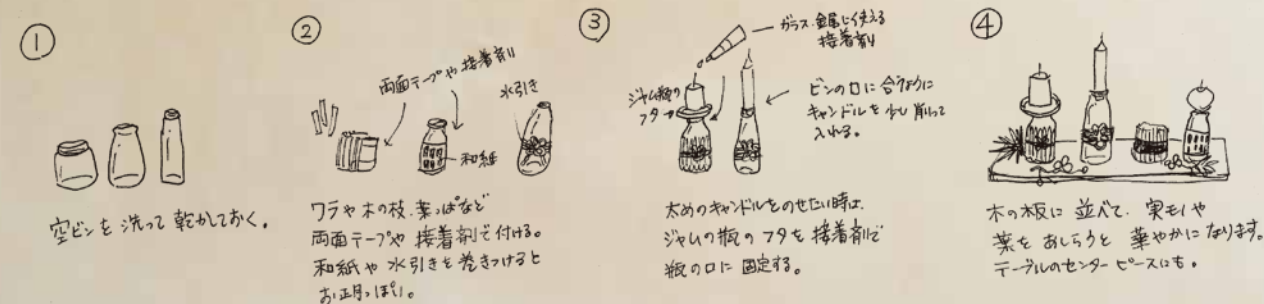 ①
空ビンを洗って乾かしておく。
②
両面テープや接着剤
水引き
和紙
ワラや木の枝、葉っぱなど
両面テープや接着剤で付ける。
和紙や水引きを巻きつけると
お正月っぽい。
③
ガラス・金属に使える
接着剤
ジャム瓶の
フタ
ビンの口に合うように
キャンドルを少し削って
入れる。
太めのキャンドルをのせたい時は、
ジャムの瓶のフタを接着剤で
瓶の口に固定する。
④
木の板に並べて、実モノや
葉をあしらうと華やかになります。
テーブルのセンターピースにも。